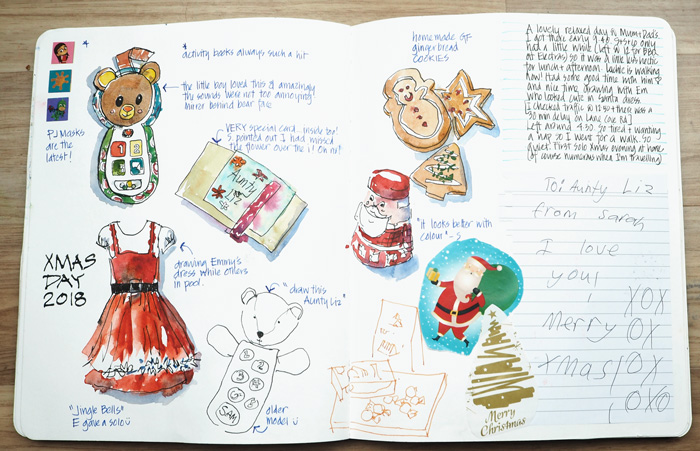 * activity books always such a hit
the little boy loved this & amazingly
the sounds were not too annoying!
mirror behind bear face
PJ Masks
are the
latest!
1
2
VERY special card...inside too!
S. pointed out I had missed
the flower over the i! Oh no!
Aunty
Liz
XMAS
DAY
2018
drawing Emmy's
dress while others
in pool.
"draw this
Aunty Liz"
"Jingle Bells"
E gave a solo
SAM
older
model
homemade GF
gingerbread
COOKIES
"it looks better with
colour" - S
To
Aunty
Merry
Christmas
A lovely relaxed day @ Mum+Dad's.
I got there early 9.40. S+S+CO only
had a little while (left @ 12 for BBQ
at Electras) so it was a little bit hectic
for lunch + afternoon. is walking
now! Had some good time with him
and nice time drawing with Em
who looked cute in Santa dress.
[checked traffic @ 12.50 + there was a
30 min delay on Lane Cove Rd]
Left around 4.30. So tired + wanting
a nap so I went for a walk. So
quiet. First solo Xmas evening at home
(of course numerous when I'm travelling)
To: Aunty Liz
from Sarah
I love
you!
XOX
Merry OX
Xmas! OX
OXO